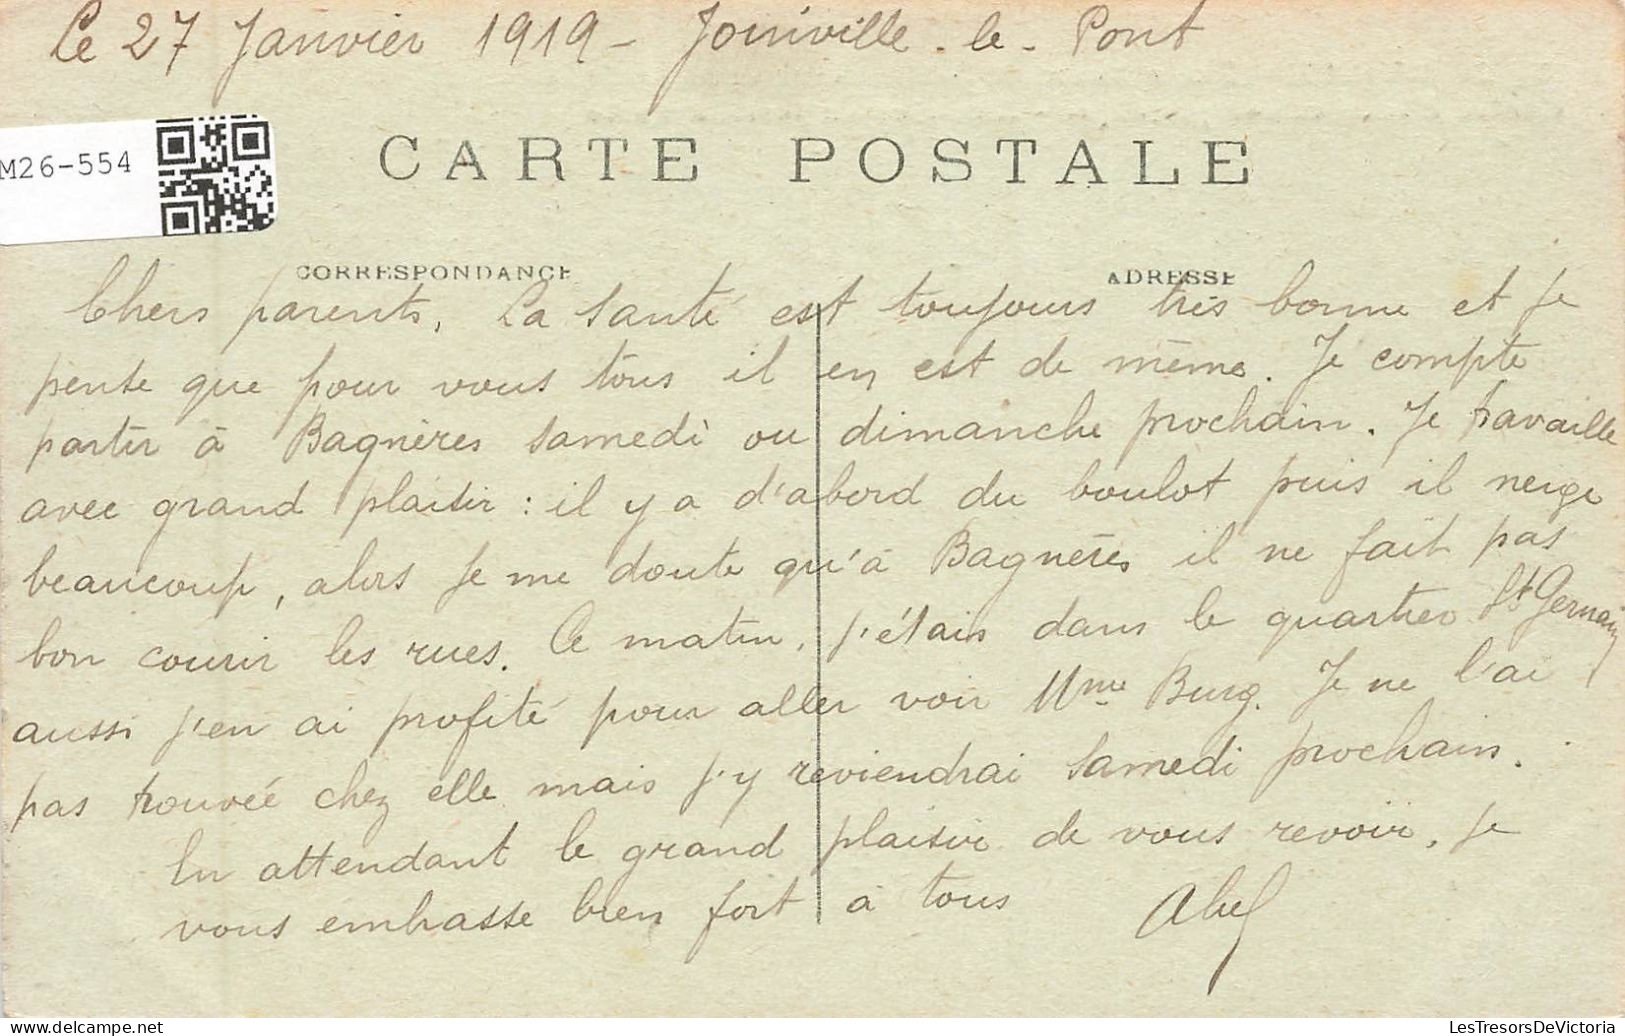 Le 27 Janvier 1919 - Joinville-le-Pont
CARTE POSTALE
M26-554
CORRESPONDANCE
ADRESSE
Chers parents, La santé est toujours très bonne et je
pense que pour vous tous il en est de même. Je compte
partir à Bagnères samedi ou dimanche prochain. Je travaille
avec grand plaisir : il y a d'abord du boulot puis il neige
beaucoup, alors je me doute qu'à Bagnères il ne fait pas
bon courir les rues. Ce matin, j'étais dans le quartier St Germain
aussi j'en ai profité pour aller voir Mme Burg. Je ne l'ai
pas trouvée chez elle mais j'y reviendrai samedi prochain.
En attendant le grand plaisir de vous revoir, je
vous embrasse bien fort à tous Abel
LesTresorsDeVictoria
www.delcampe.net